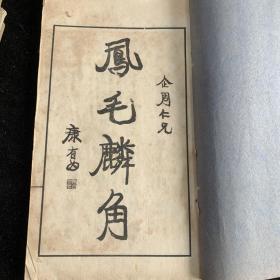 企周仁兄
鳳毛麟角
康有為